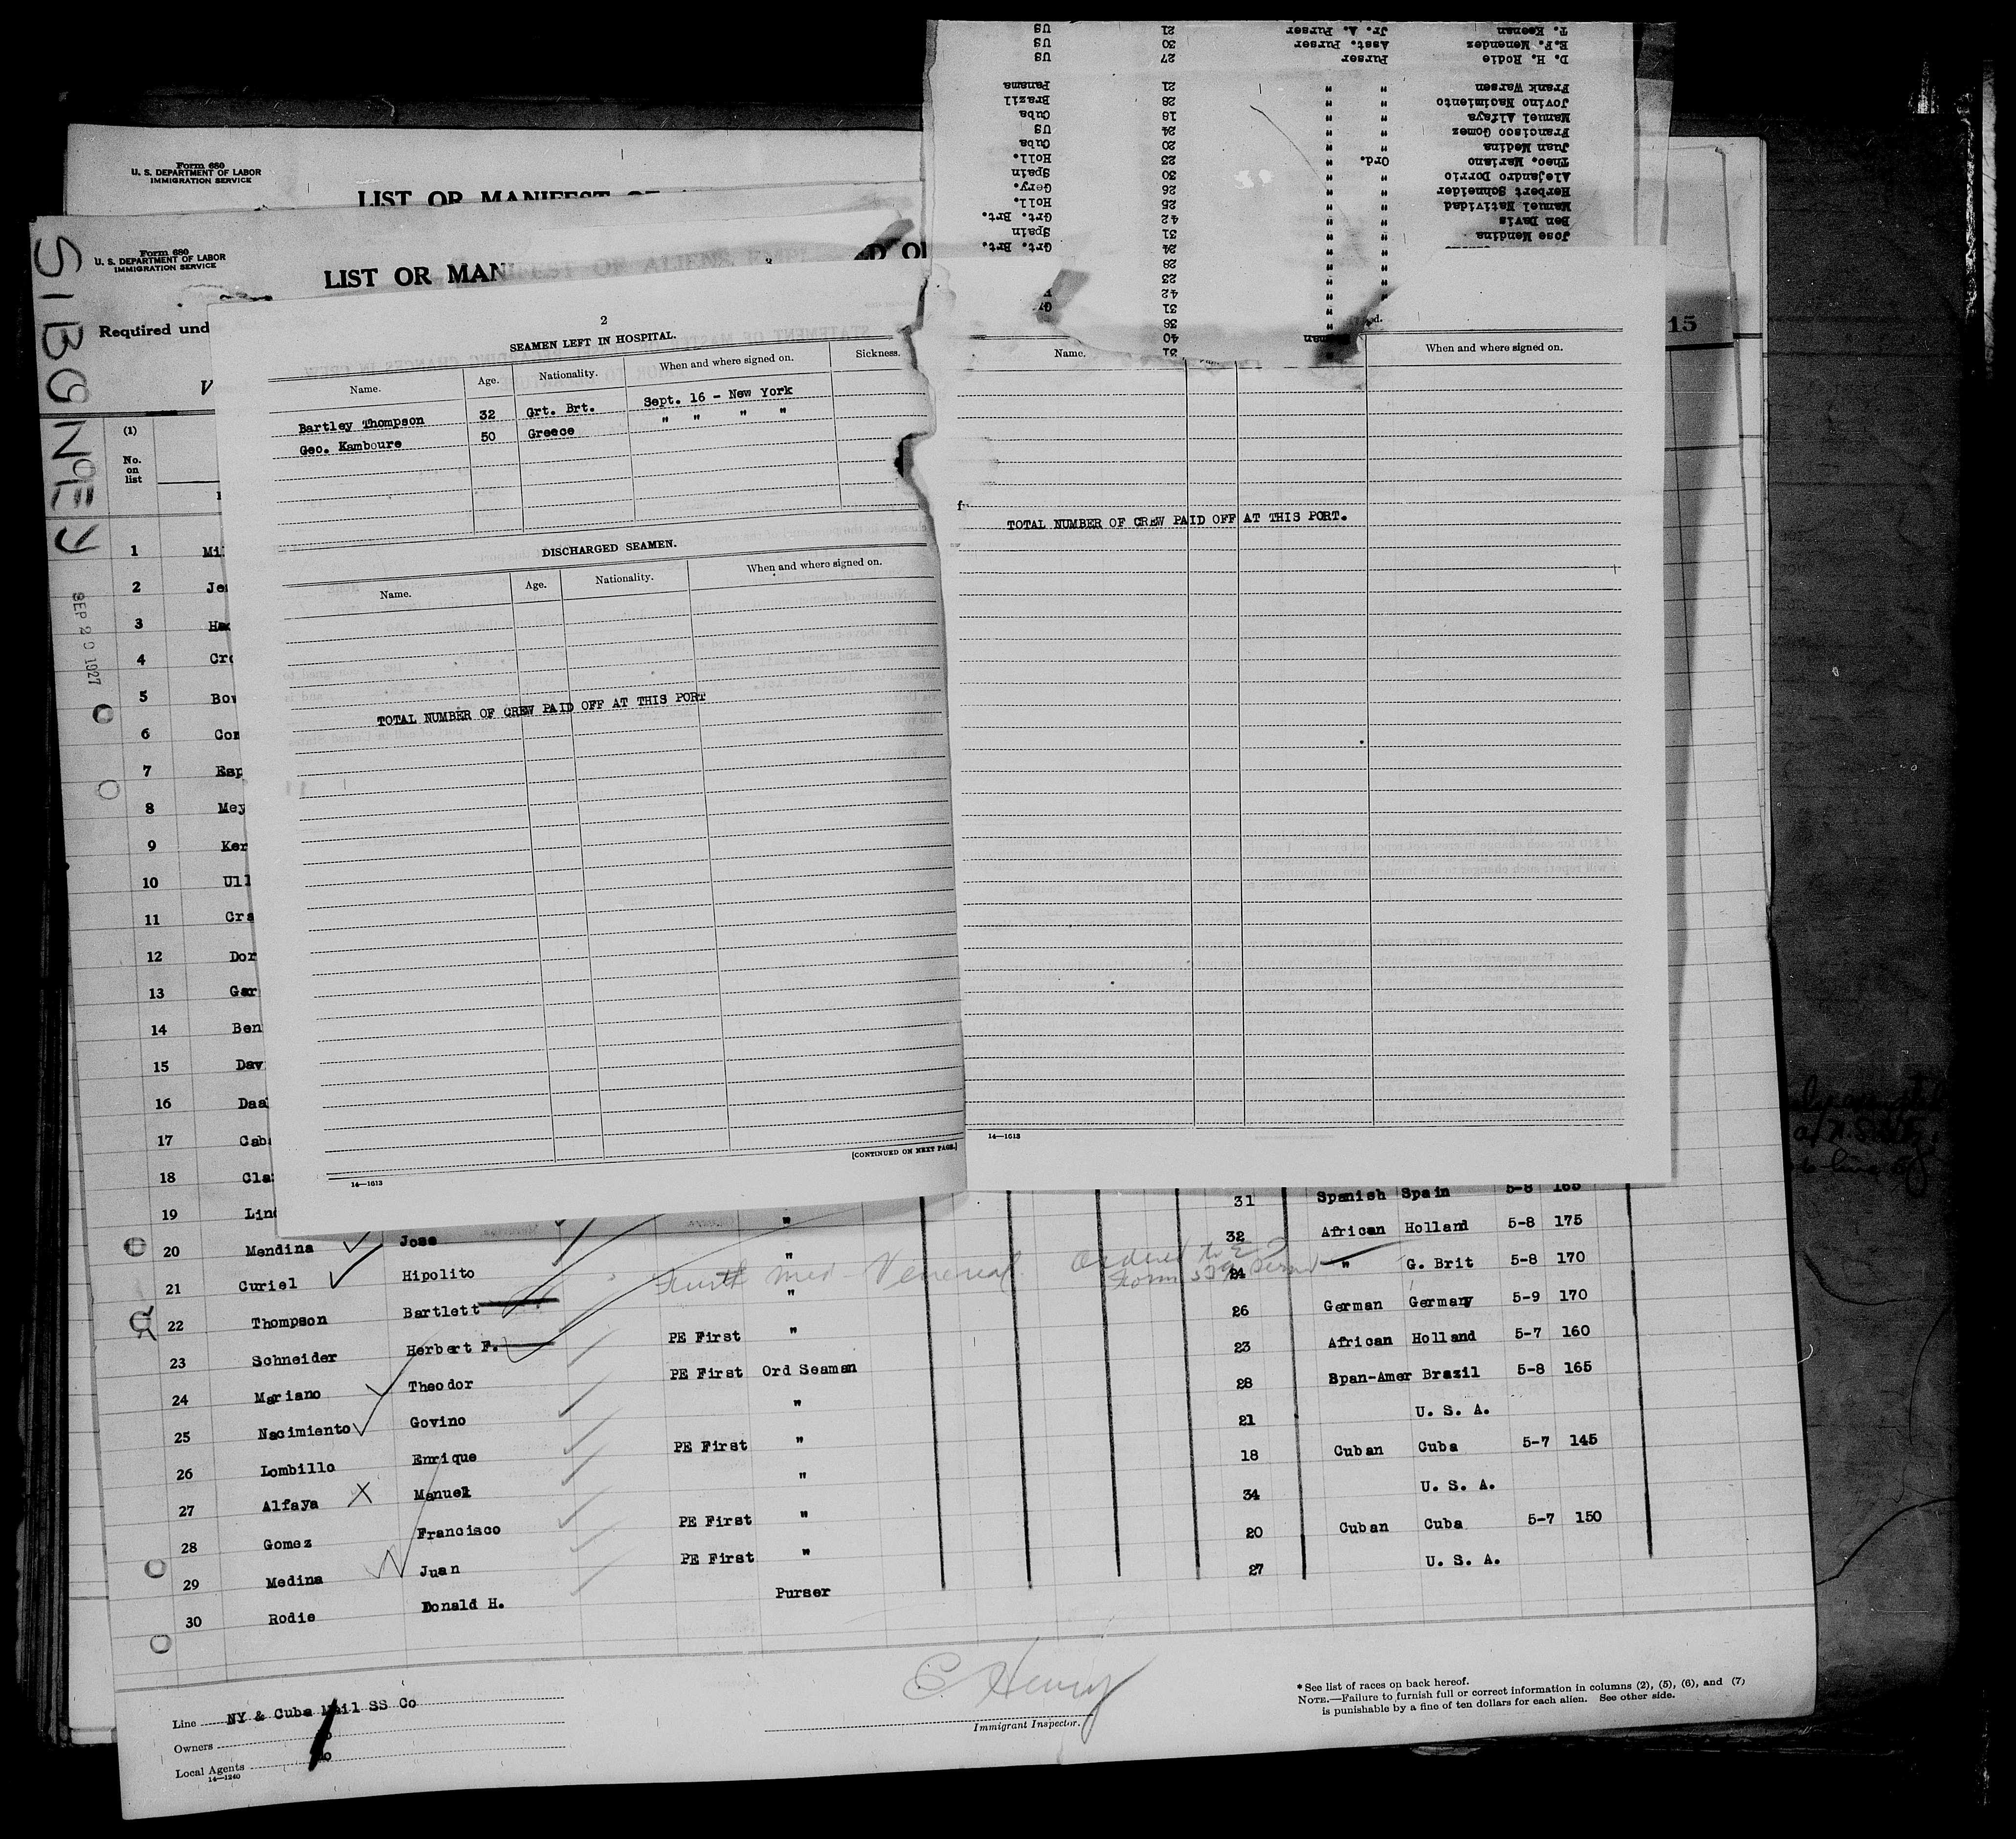 T. Keenan Jr. A. Purser 21 US
E.F. Menendez Asst. Purser 30 US
D. H. Rodie Purser 27 US
Frank Warsen " " 21 Panama
Jovino Nacimiento " " 28 Brazil
Manuel Alfaya " " 18 Cuba
Francisco Gomez " " 24 US
Juan Medina " " 20 Cuba
Theo. Mariano Ord. " 23 Holl.
Alejandro Dorrio " " 30 Spain
Herbert Schneider " " 26 Gery.
Manuel Natividad " " 25 Holl.
Ben Davis " " 42 Grt. Brt.
Jose Mendina " " 31 Spain
" " 24 Grt. Brt.
" 28
" 23
" 42
" 31
" 38
40
31
Form 680
U. S. DEPARTMENT OF LABOR
IMMIGRATION SERVICE
LIST OR MANIFEST OF
Form 680
U. S. DEPARTMENT OF LABOR
IMMIGRATION SERVICE
LIST OR MAN
SIBONEY
SEP 20 1927
15
Required und
V
(1)
No. on list
2
SEAMEN LEFT IN HOSPITAL.
Name. Age. Nationality. When and where signed on. Sickness.
Bartley Thompson 32 Grt. Brt. Sept. 16 - New York
Geo. Kamboure 50 Greece " " " "
DISCHARGED SEAMEN.
Name. Age. Nationality. When and where signed on.
TOTAL NUMBER OF CREW PAID OFF AT THIS PORT
[CONTINUED ON NEXT PAGE.]
14—1613
Name. When and where signed on.
TOTAL NUMBER OF CREW PAID OFF AT THIS PORT.
14—1613
1 Mi
2 Je
3
4 Cro
5 Bow
6 Gon
7 Esp
8 Mey
9 Ker
10 Ull
11 Cra
12 Dor
13 Gar
14 Ben
15 Dav
16 Daa
17 Cab
18 Cla
19 Lind
20 Mendina Jose " 31 Spanish Spain 5-8 165
21 Curiel Hipolito " 32 African Holland 5-8 175
22 Thompson Bartlett " 24 " G. Brit 5-8 170
Venereal Ordered to
23 Schneider Herbert F. PE First " 26 German Germany 5-9 170
24 Mariano Theodor PE First Ord Seaman 23 African Holland 5-7 160
25 Nacimiento Govino " 28 Span-Amer Brazil 5-8 165
26 Lombillo Enrique PE First " 21 U. S. A.
27 Alfaya X Manuel " 18 Cuban Cuba 5-7 145
28 Gomez Francisco PE First " 34 U. S. A.
29 Medina Juan PE First " 20 Cuban Cuba 5-7 150
30 Rodie Donald H. Purser 27 U. S. A.
Line NY & Cuba Mail SS Co
Owners
Local Agents
14—1240
C Henry
Immigrant Inspector.
* See list of races on back hereof.
NOTE.—Failure to furnish full or correct information in columns (2), (5), (6), and (7)
is punishable by a fine of ten dollars for each alien. See other side.